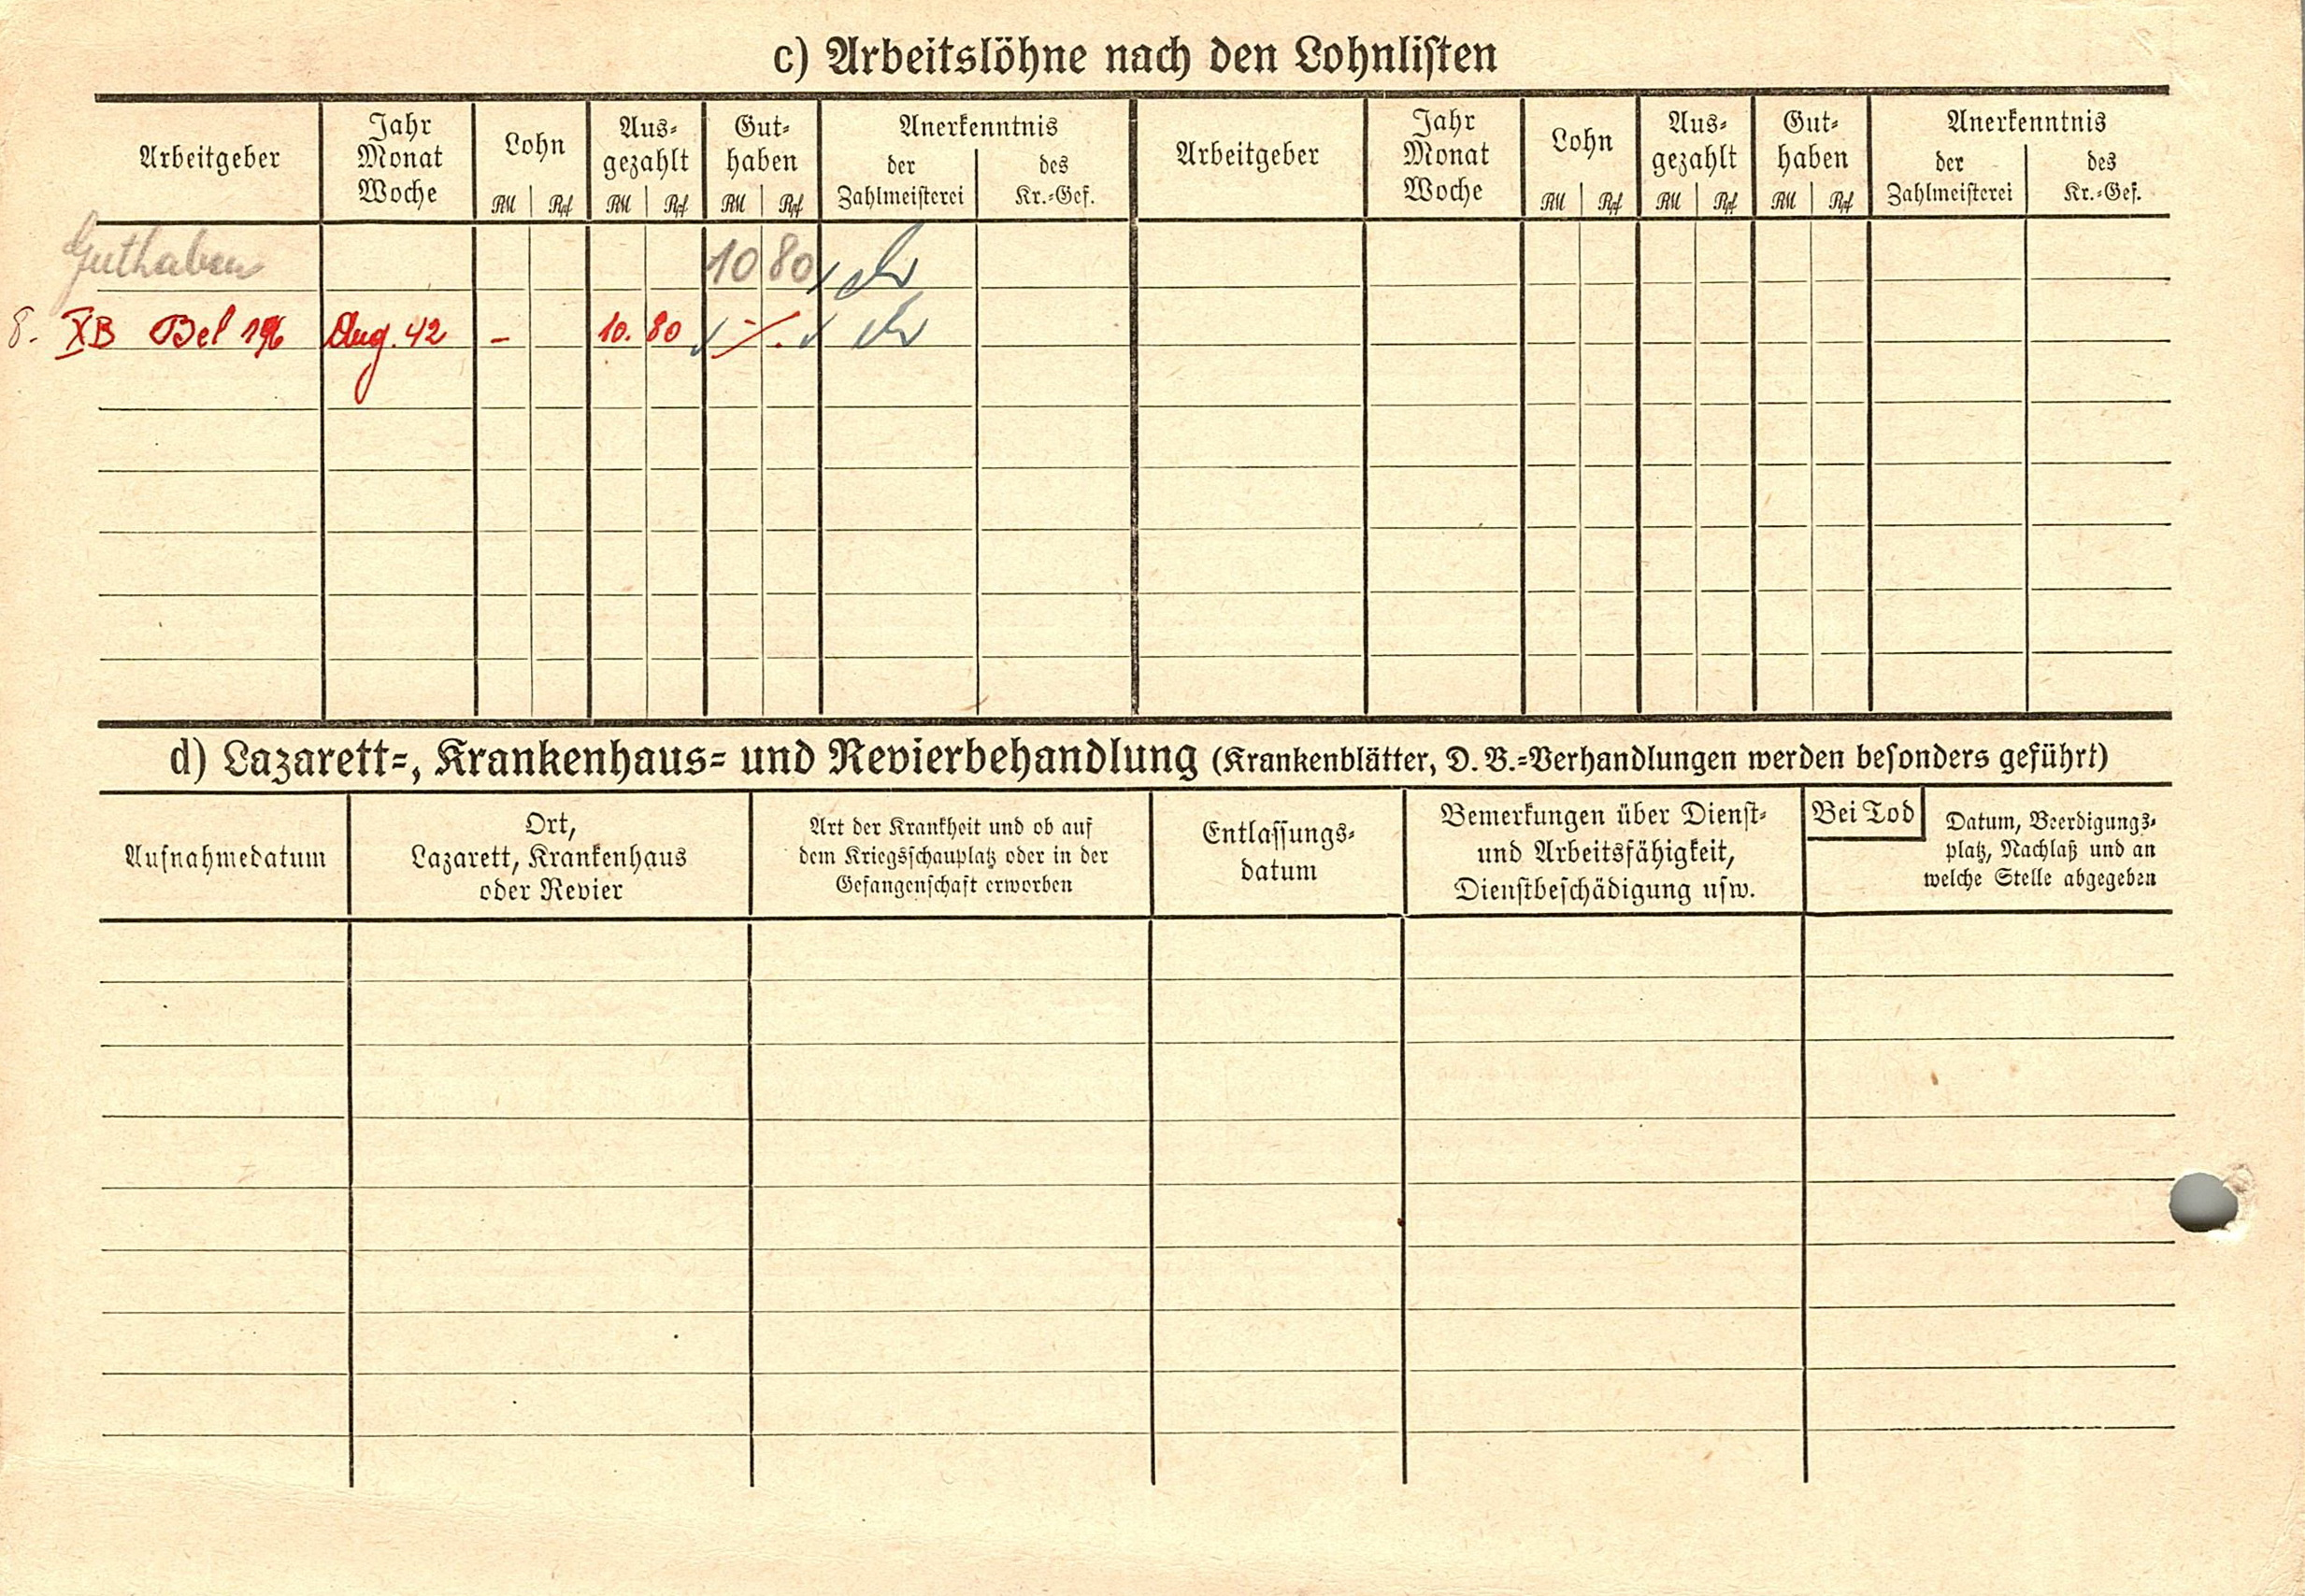 c) Arbeitslöhne nach den Lohnlisten
Arbeitgeber
Jahr
Monat
Woche
Lohn
RM Rpf
Aus-
gezahlt
RM Rpf
Gut-
haben
RM Rpf
Anerkenntnis
der
Zahlmeisterei
des
Kr.-Gef.
Arbeitgeber
Jahr
Monat
Woche
Lohn
RM Rpf
Aus-
gezahlt
RM Rpf
Gut-
haben
RM Rpf
Anerkenntnis
der
Zahlmeisterei
des
Kr.-Gef.
Guthaben 10 80
8. XB Bel 196 Aug. 42 - 10. 80
d) Lazarett-, Krankenhaus- und Revierbehandlung (Krankenblätter, D. B.-Verhandlungen werden besonders geführt)
Aufnahmedatum
Ort,
Lazarett, Krankenhaus
oder Revier
Art der Krankheit und ob auf
dem Kriegsschauplatz oder in der
Gefangenschaft erworben
Entlassungs-
datum
Bemerkungen über Dienst-
und Arbeitsfähigkeit,
Dienstbeschädigung usw.
Bei Tod
Datum, Beerdigungs-
platz, Nachlaß und an
welche Stelle abgegeben